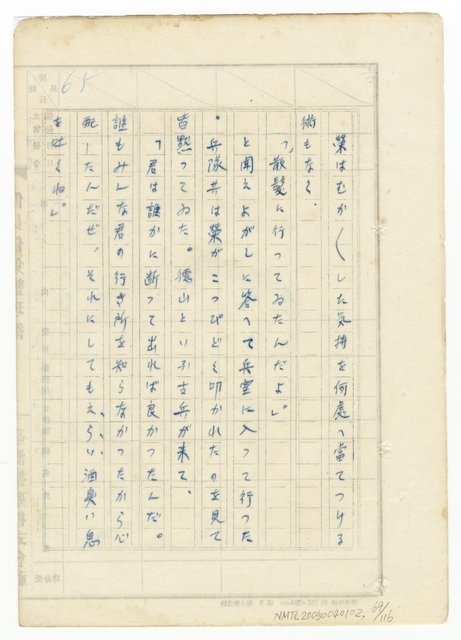 65
榮はむか〱した気持を何處へ當てつける
術もなく、
「散髪に行ってゐたんだよ」
と聞えよがしに答へて兵室に入って行った
。兵隊共は榮がこっぴどく叩かれたのを見て
皆黙ってゐた。德山といふ古兵が来て、
「君は誰かに断って出れば良かったんだ。
誰もみんな君の行き所を知らなかったから心
配したんだぜ。それにしてもえらい酒臭い息
を吐くね」
NMTL20050040102
69/116